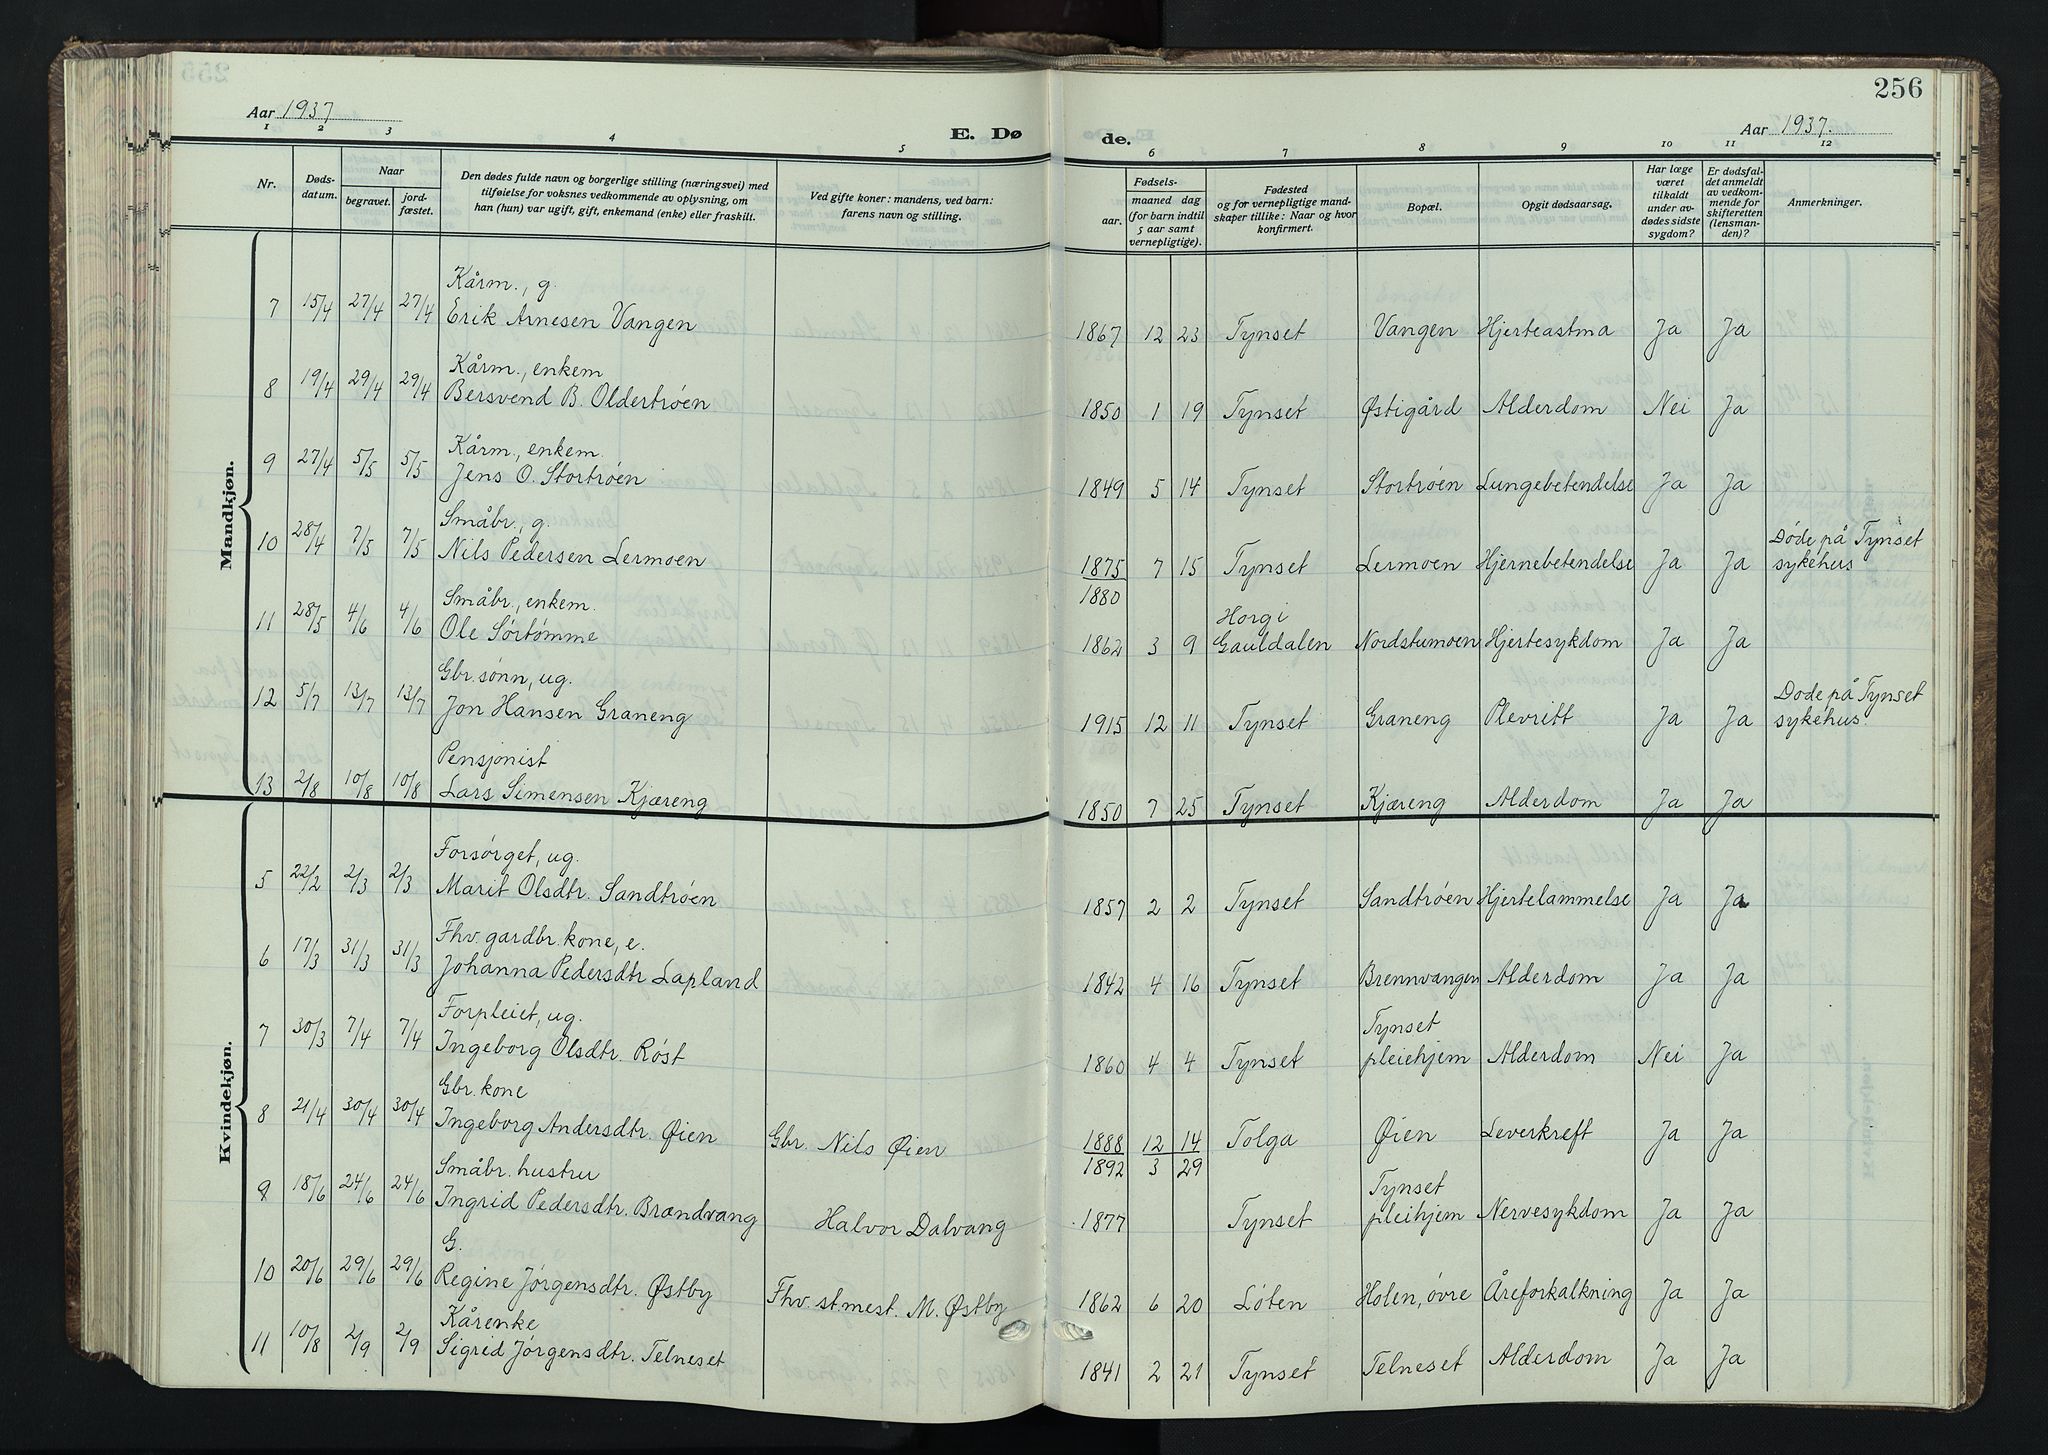 256
Aar 1937
E. Døde.
Aar 1937.
1 2 3 4 5 6 7 8 9 10 11 12
Nr.
Døds-
datum.
Naar
begravet.
jord-
fæstet.
Den dødes fulde navn og borgerlige stilling (næringsvei) med
tilføielse for voksnes vedkommende av oplysning, om
han (hun) var ugift, gift, enkemand (enke) eller fraskilt.
Ved gifte koner: mandens, ved barn:
farens navn og stilling.
Fødsels-
aar. maaned dag
(for barn indtil
5 aar samt
vernepligtige).
Fødested
og for vernepligtige mand-
skaper tillike: Naar og hvor
konfirmert.
Bopæl.
Opgit dødsaarsag.
Har læge
været
tilkaldt
under av-
dødes sidste
sygdom?
Er dødsfal-
det anmeldt
av vedkom-
mende for
skifteretten
(lensman-
den)?
Anmerkninger.
Mandkjøn.
Kårm., g.
7 15/4 27/4 27/4 Erik Arnesen Vangen 1867 12 23 Tynset Vangen Hjerteastma Ja Ja
Kårm., enkem
8 19/4 29/4 29/4 Bersvend B. Oldertrøen 1850 1 19 Tynset Østigård Alderdom Nei Ja
Kårm., enkem.
9 27/4 5/5 5/5 Jens O. Stortrøen 1849 5 14 Tynset Stortrøen Lungebetendelse Ja Ja
Småbr., g. Døde på Tynset
10 28/4 7/5 7/5 Nils Pedersen Lermoen 1875 7 15 Tynset Lermoen Hjernebetendelse Ja Ja sykehus
1880
Småbr., enkem. Horg i
11 28/5 4/6 4/6 Ole Sørtømme 1862 3 9 Gauldalen Nordstumoen Hjertesykdom Ja Ja
Gbr. sønn, ug. Døde på Tynset
12 5/7 13/7 13/7 Jon Hansen Graneng 1915 12 11 Tynset Graneng Plevritt Ja Ja sykehus.
Pensjonist
13 2/8 10/8 10/8 Lars Simensen Kjæreng 1850 7 25 Tynset Kjæreng Alderdom Ja Ja
Kvindekjøn.
Forsørget, ug.
5 22/2 2/3 2/3 Marit Olsdtr. Sandtrøen 1857 2 2 Tynset Sandtrøen Hjertelammelse Ja Ja
Fhv. gardbr. kone, e.
6 17/3 31/3 31/3 Johanna Pedersdtr Lapland 1842 4 16 Tynset Brennvangen Alderdom Ja Ja
Forpleiet, ug. Tynset
7 30/3 7/4 7/4 Ingeborg Olsdtr. Røst 1860 4 4 Tynset pleiehjem Alderdom Nei Ja
Gbr. kone
8 21/4 30/4 30/4 Ingeborg Andersdtr. Øien Gbr. Nils Øien 1888 12 14 Tolga Øien Leverkreft Ja Ja
1892 3 29
Småbr. hustru Tynset
9 18/6 24/6 24/6 Ingrid Pedersdtr. Brændvang Halvor Dalvang 1877 Tynset pleihjem Nervesykdom Ja Ja
G.
10 20/6 29/6 29/6 Regine Jørgensdtr. Østby Fhv. st.mest. M. Østby 1862 6 20 Løten Holen, øvre Åreforkalkning Ja Ja
Kårenke
11 10/8 2/9 2/9 Sigrid Jørgensdtr. Telneset 1841 2 21 Tynset Telneset Alderdom Ja Ja